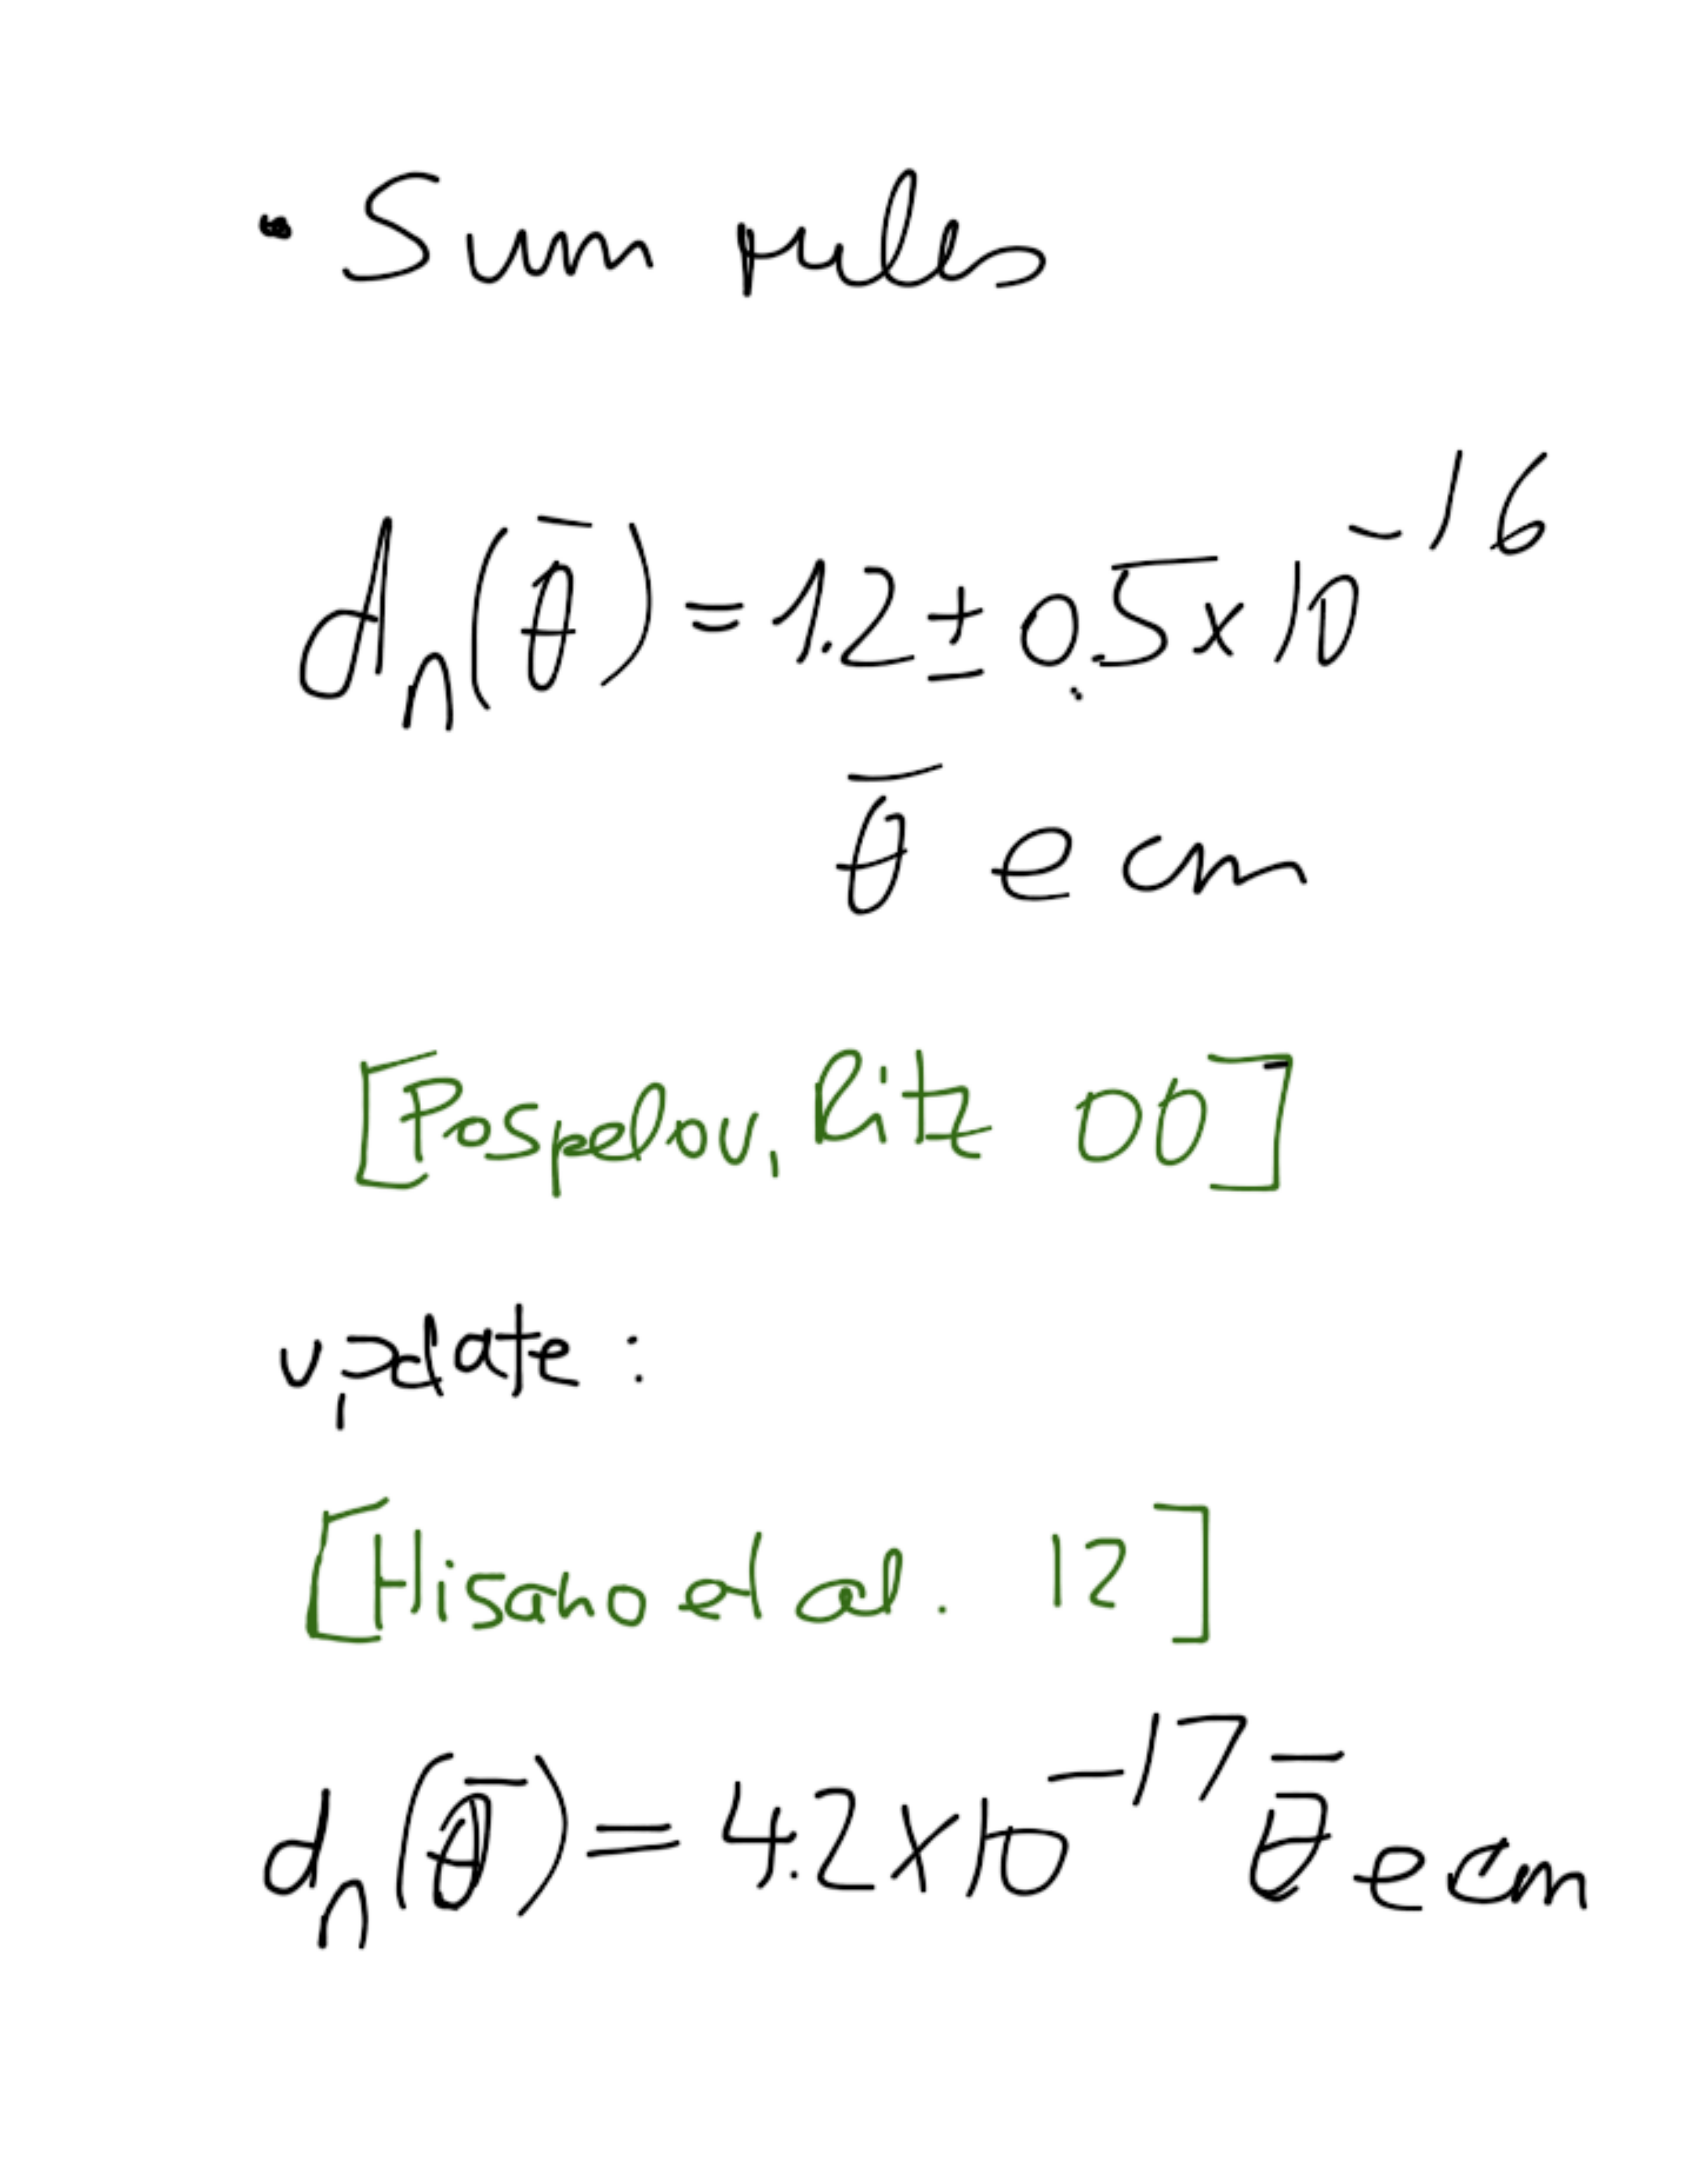 • Sum rules
dₙ(θ̄) = 1.2 ± 0.5 × 10⁻¹⁶
θ̄ e cm
[Pospelov, Ritz 00]
update :
[Hisano et al. 12]
dₙ(θ̄) = 4.2 × 10⁻¹⁷ θ̄ e cm